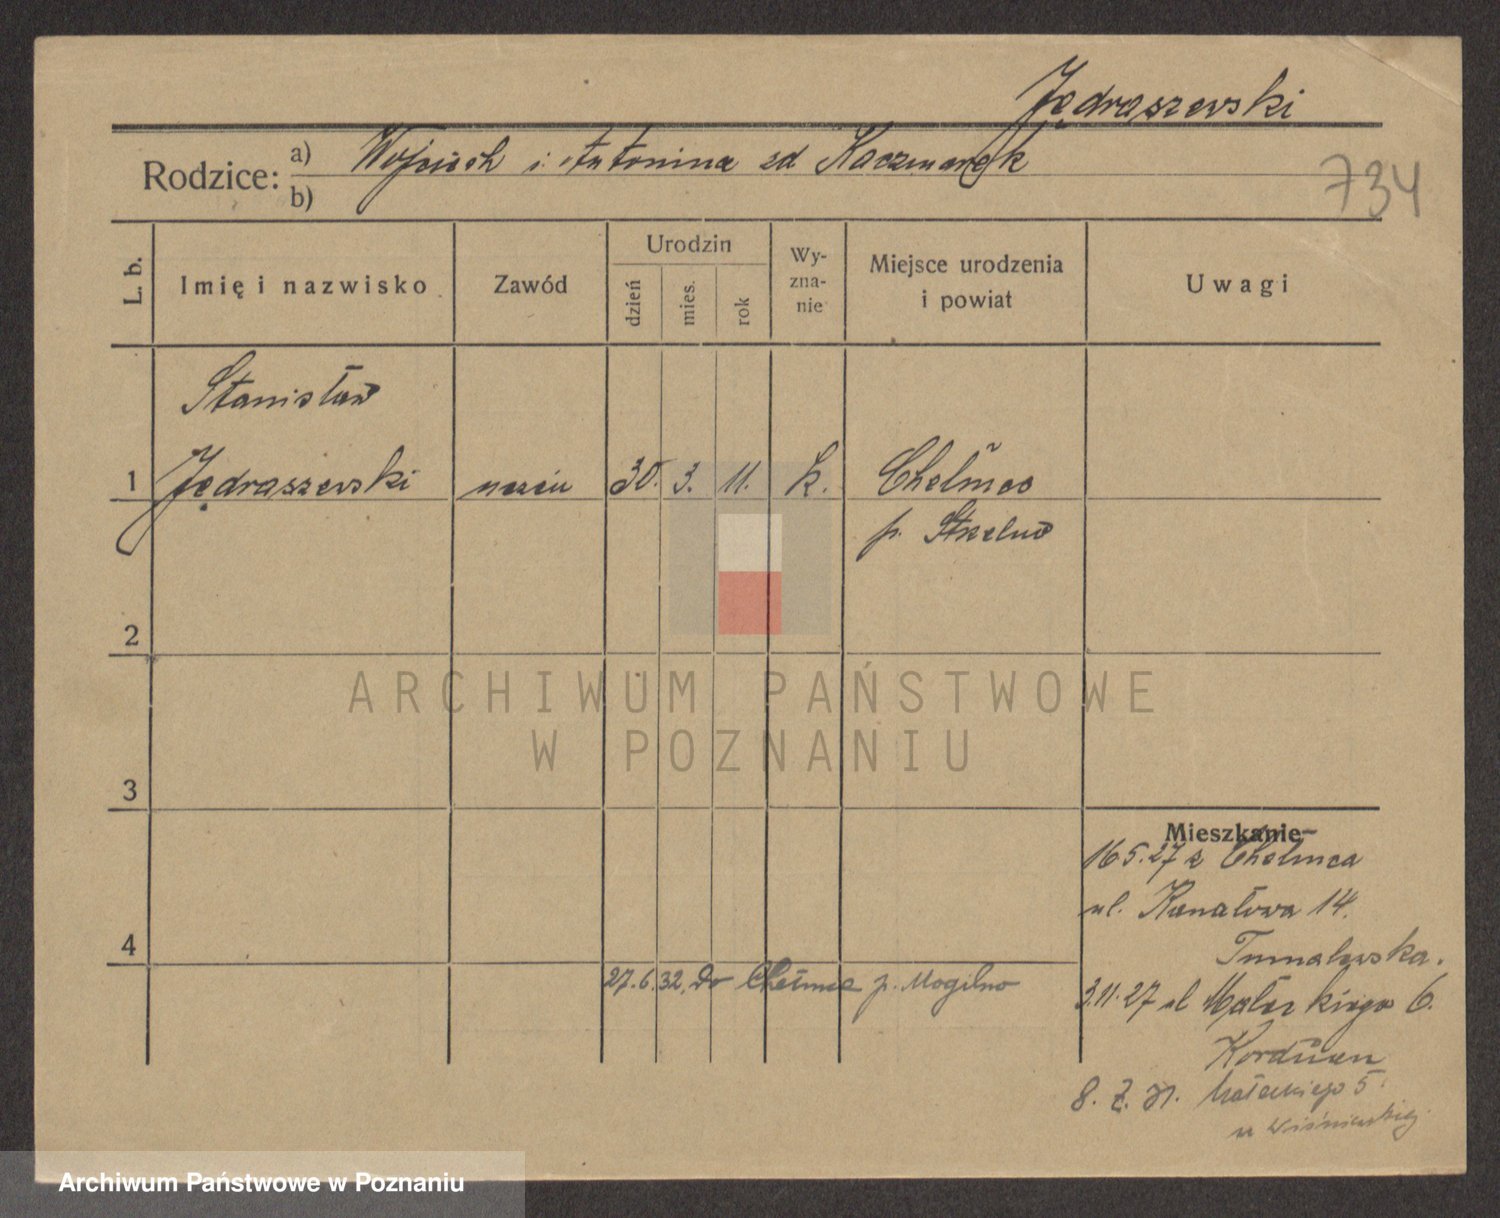 Jędraszewski
Rodzice: a) Wojciech i Antonina zd Kaczmarek
b)
734
L. b.
Imię i nazwisko
Zawód
Urodzin
dzień
mies.
rok
Wy-
zna-
nie
Miejsce urodzenia
i powiat
Uwagi
Stanisław
1 Jędraszewski uczeń 30. 3. 11. k. Chełmce
p. Strzelno
2
3
4
Mieszkanie
16.5.27 z Chełmca
ul. Kanałowa 14.
3.11.27 ul Małeckiego 6.
8. 31. Małeckiego 5
u Wiśniewskiej
27.6.32. Do Chełmce p. Mogilno
ARCHIWUM PAŃSTWOWE
W POZNANIU
Archiwum Państwowe w Poznaniu